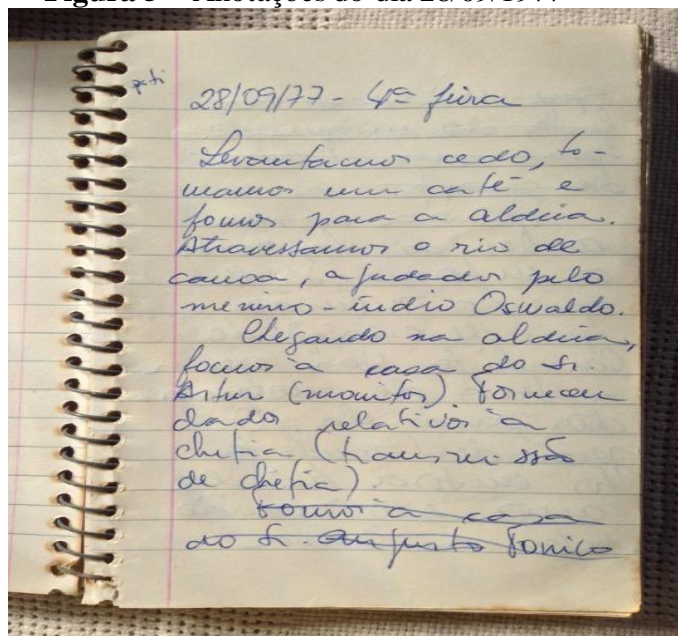 28/09/77 - 4ª feira
Levantamos cedo, to-
mamos um café e
fomos para a aldeia.
Atravessamos o rio de
canoa, ajudados pelo
menino-índio Oswaldo.
Chegando na aldeia,
fomos à casa do Sr.
Artur (monitor). Forneceu
dados relativos à
chefia (transmissão
de chefia).
Fomos à casa
do Sr. Augusto Tonico